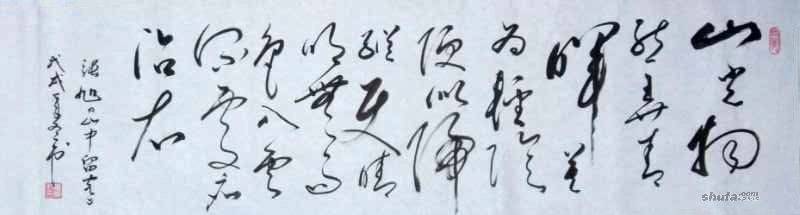 山光物
態弄春
暉莫
為輕陰
便擬歸
縱使晴
明無雨
色入雲
深處亦
沾衣
張旭山中留客
戊戌
shufa